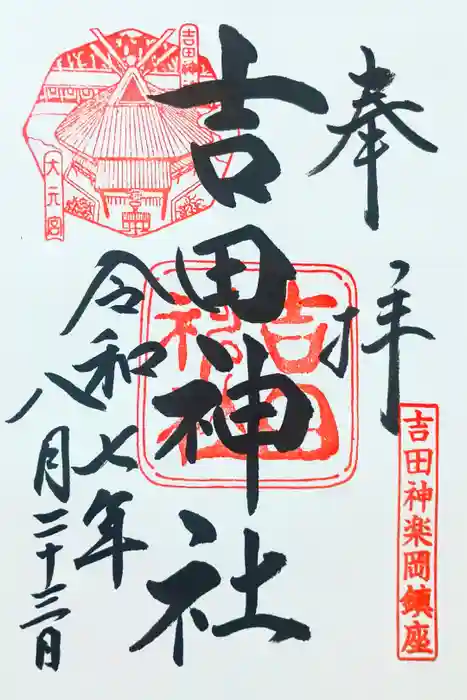 奉拝
吉田神楽岡鎮座
吉田神社
吉田神社
吉田神社
大元宮
令和七年
八月二十三日